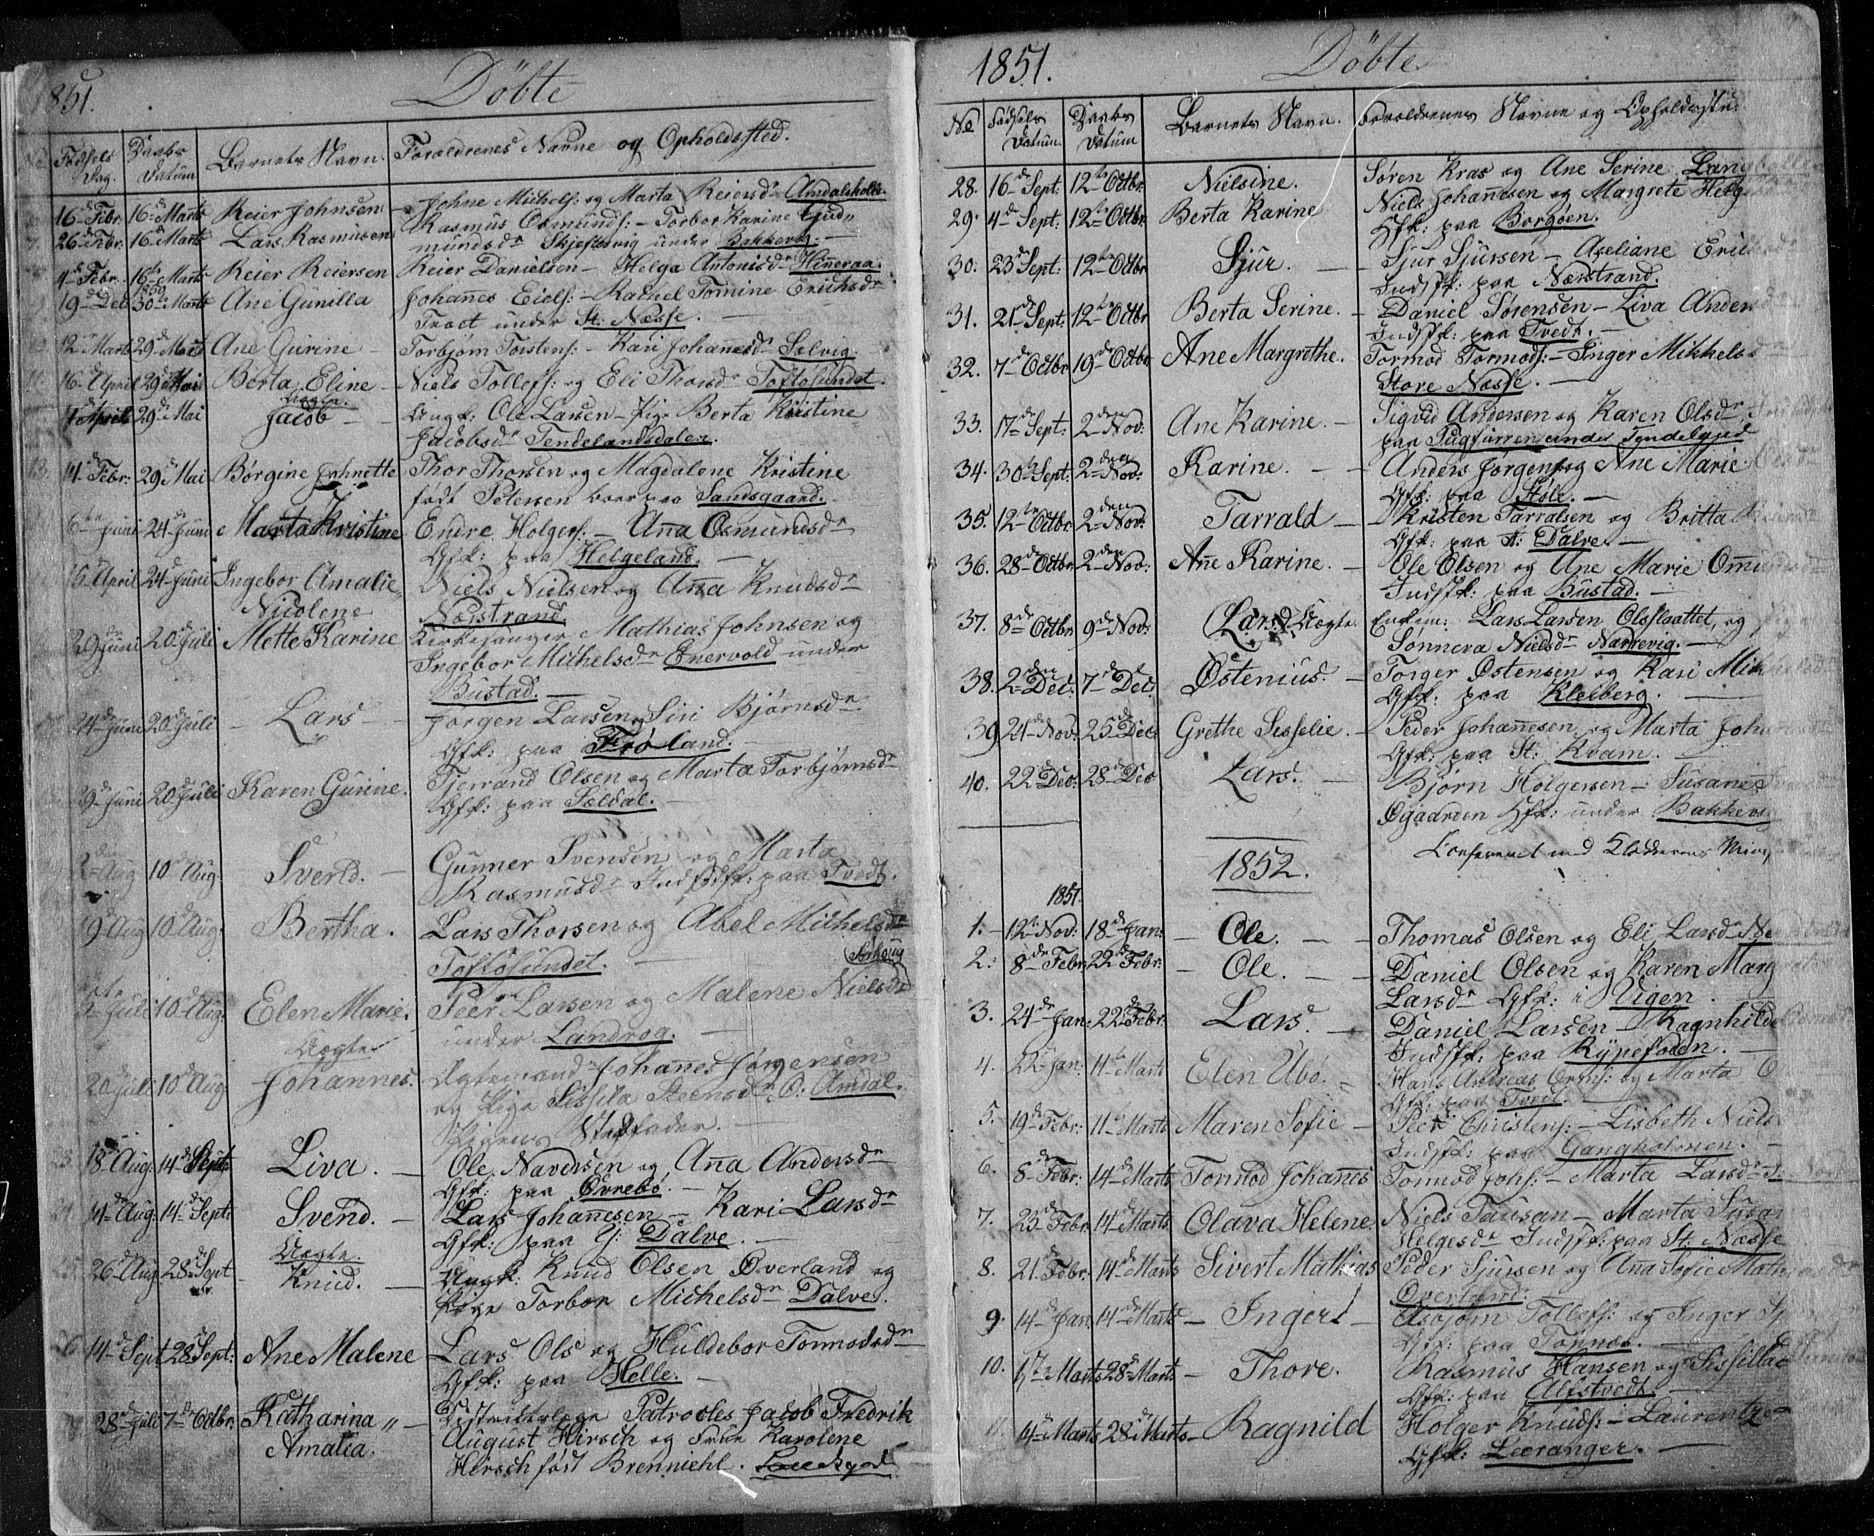 1851. Döbte
Fødsels Dag. Daabs Datum Barnets Navn. Foreldrenes Navne og Opholdssted.
16de Febr. 16de Marts Reier Johnsen Johne Michels: og Marta Reiersdr Amdalsholle
26de Febr. 16de Marts Lars Rasmussen Rasmus Osmunds: - Torbor Karine Gud
mundsdr Skjeftevig under Bakkevig. -
4de Febr. 16de Marts Reier Reiersen Reier Danielsen - Helga Antonisdr Hinneraa.
19de Dec. 1850 30de Marts Ane Gunilla Johannes Eiels: - Rachel Tomine Erichsdr
Troet under St: Næsse. -
12te Marts 29de Mai Ane Gurine - Torbjørn Torstens: - Kari Johanesdr Selvig.
16de April 29de Mai Berta Eline - Niels Tollefs: og Eli Thorsdr Toftøsundet.
4de April 29de Mai Uægte. Jacob - Ungk: Ole Larsen - Pige Berta Kristine
Jacobsdr Tendelandsdalen.
13. 14de Febr: 29de Mai Børgine Johnette Thor Thorsen og Magdalene Kristine
født Petersen boer paa Sandsgaard.
6te Juni 24de Juni Marta Kristine Endre Holgers: - Anna Osmundsdr
Gfk: paa Helgeland. -
16de April 24de Juni Ingebor Amalie Niels Nielsen og Anna Knudsdr
Nicolene Nærstrand
29de Juni 20de Juli Mette Karine Kirkesanger Mathias Johnsen og
Ingebor Michelsdr Enervold under
Bustad. -
24de Juni 20de Juli - Lars - Jørgen Larsen og Siri Bjørnsdr
Gfk: paa Frøland. -
29de Juni 20de Juli Karen Gurine. Tjerrand Olsen og Marta Torbjørnsdr
Gfk: paa Sældal. -
2den Aug 10de Aug. Svend. - Gunner Svensen og Marta
Rasmusdr Indstfk: paa Tvedt.
19de Aug 10de Aug. Bertha. Lars Thorsen og Abel Michelsdr
Toftøsundet. -
Juli 10de Aug. Elen Marie. Peer Larsen og Malene Nielsdr
under Landrøg. -
20de Juli 10de Aug. Uægte Johannes. Ægtemand Johanes Jørgensen
og Pige Sissila Steensdr, O: Amdal.
Pigens Stedfader. -
23. 18de Aug. 14de Septr Liva. - Ole Navdsen og Anna Andersdr
Gfk: paa Øvrebø. -
24. 14de Aug: 14de Septr Svend. - Lars Johannesen - Kari Larsdr
Gfk: paa Y: Dalve. -
25. 26de Aug 28de Sept Uægte. Knud. - Ungk: Knud Olsen Øverland og
Pige Torbor Michelsdr Dalve.
26 14de Sept 28de Sept: Ane Malene Lars Ols og Huldebor Tormodsdr
Gfk: paa Helle. -
28de Juli 7de Octbr. Katharina „ - Districtslæge Patrocles Jacob Fredrik
Amalia. August Hirsch og Frue Karolene
Hirsch født Brenniehl.
1851. Döbte
No Fødsels Datum. Daabs Datum Barnets Navn. Foreldrenes Navne og Opholdsste
28. 16de Sept. 12te Octbr. Nielsine. Søren Kras og Ane Serine
29. 4de Sept. 12te Octbr. Berta Karine Niels Johannesen og Margrete Helg
Gfk: paa Borgøen.
30. 23de Sept. 12te Octbr Sjur. - Sjur Sjursen - Axeliane Erich
Indstfk: paa Nærstrand.
31. 21de Sept. 12te Octbr Berta Serine. - Daniel Sørensen - Liva Anders
Indstfk: paa Tvedt. -
32. 7de Octbr 19de Octbr Ane Margrethe. Tormod Tormods: - Inger Mikkels
Store Næsse. -
33. 17de Sept. 2den Nov: Ane Karine. - Sigvid Andersen og Karen Olsdr
paa
34. 30te Sept: 2den Nov: Karine. - - Anders Jørgens og Ane Marie
Gfk: paa Støle. -
35. 12te Octbr 2den Nov: Tarrald - Kristen Tarralsen og Britta
Gfk: paa Y: Dalve. -
36. 28de Octbr 2den Nov: Ane Karine. - Ole Olsen og Ane Marie Omu
Indstfk: paa Bustad. -
37. 8de Octbr 9de Nov: Lars Uægte. Enkem: Lars Larsen Olsflaattet, og
Sønneva Nielsdr Narrevig. -
38. 2den Dec: 7de Dec: Østenius. - Torger Østensen og Kari Mik
Gfk: paa Kleiberg. -
39 21de Nov: 25de Dec: Grethe Sisselie. - Peder Johannesen og Marta Joha
Gfk: paa St: Kvam. -
40. 22de Dec: 28de Dec Lars. - Bjørn Holgersen - Susane
Øgaarden Gfk: under Bakkevi
Confereret med Klokkerens Mini
1852.
1851.
1. - 12te Nov: 18de Jan: - Ole. - - Thomas Olsen og Eli Larsdr
2. 8de Febr: 22de Febr: - Ole. - Daniel Olsen og Karen Marg
Larsdr Gfk: i Vigen.
3. 24de Jan: 22de Febr: Lars. - Daniel Larsen - Ragnhilde
Indstfk: paa Rypefoden. -
4. 22de Jan: 11te Marts Elen Ubø. Hans Andreas Orms: og Marta
Gfk: paa Tvedt. -
5. 19de Febr: 11te Marts Maren Sofie - Peer Christens: - Lisbeth Niels
Indstfk: paa Gangholmen. -
6. 8de Febr. 14de Marts Tormod Johanes Tormod Johs: - Marta Larsdr
7. 23de Febr 14de Marts Olava Helene Niels Tausan - Marta Susan
Helgesdr Indstfk: paa St. Næsse
8. 21de Febr. 14de Marts Sivert Mathias Peder Sjursen og Ana Sofie Math
Øverland.
9. 14de Jan: 14de Marts - Inger - Asbjørn Tollefs: og Inger
Gfk: paa Tonnes. -
10. 17de Marts 28de Marts - Thore. - Rasmus Hansen og Sissilla
Gfk: paa Alfstvedt. -
11. 4de Marts 28de Marts - Ragnild Holger Knuds: - Laurentze
Gfk: Leeranger. -